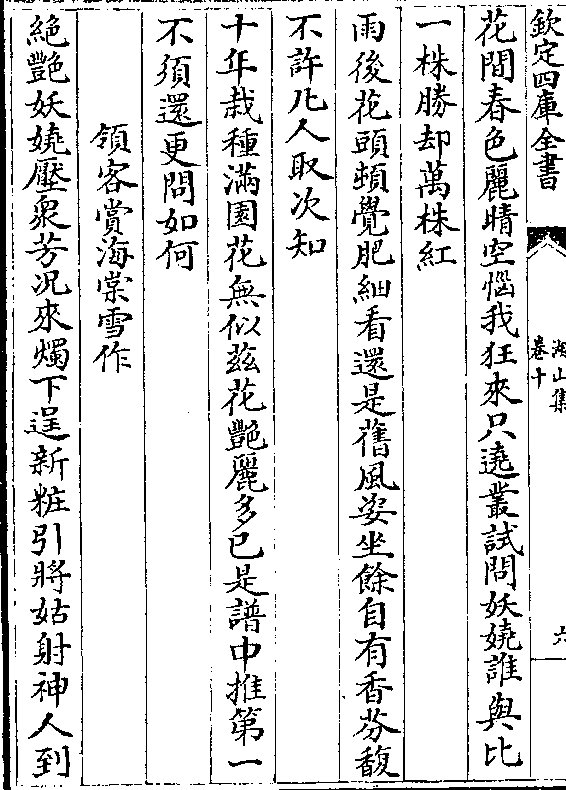 欽定四庫全書
湖山集
卷十
六
花間春色麗晴空惱我狂來只遶叢試問妖嬈誰與比
一株勝却萬株紅
雨後花頭頓覺肥細看還是舊風姿坐餘自有香芬馥
不許凡人取次知
十年栽種滿園花無似兹花艷麗多已是譜中推第一
不須還更問如何
領客賞海棠雪作
絶艷妖嬈壓衆芳况來燭下逞新粧引將姑射神人到